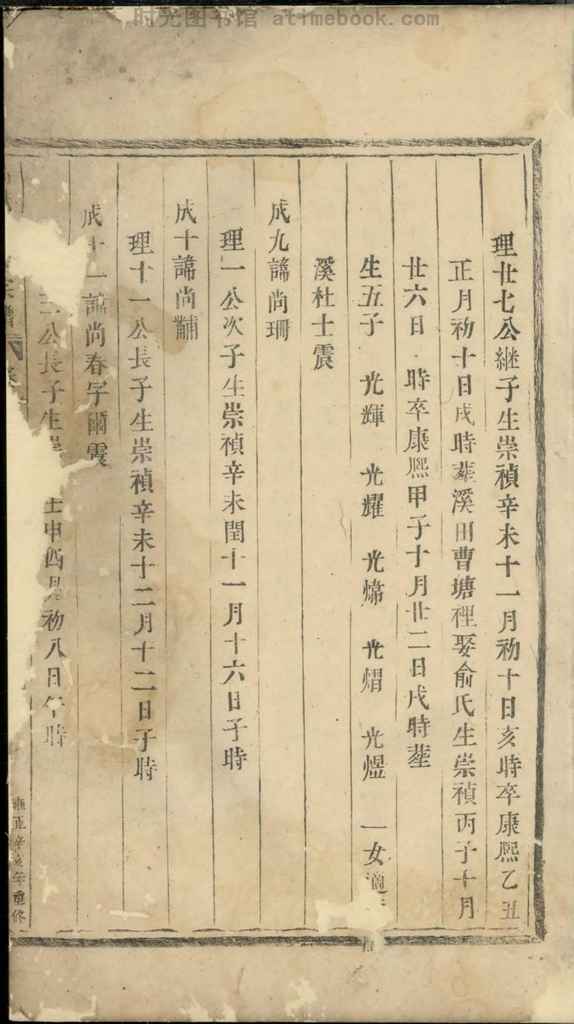 时光图书馆 atimebook.com
理廿七公継子生崇禎辛未十一月初十日亥時卒康熙乙丑
正月初十日戌時塟溪田曹塘裡娶俞氏生崇禎丙子十月
廿六日 時卒康熙甲子十月廿二日戌時塟
生五子 光輝 光耀 光 光熠 光煜 一女適
溪杜士震
成九諱尚珊
理一公次子生崇禎辛未閏十一月十六日子時
成十諱尚黼
理十一公長子生崇禎辛未十二月十二日子時
成十一諱尚春字爾震
公長子生崇 壬申酉月初八日午時
雍正辛亥年重修